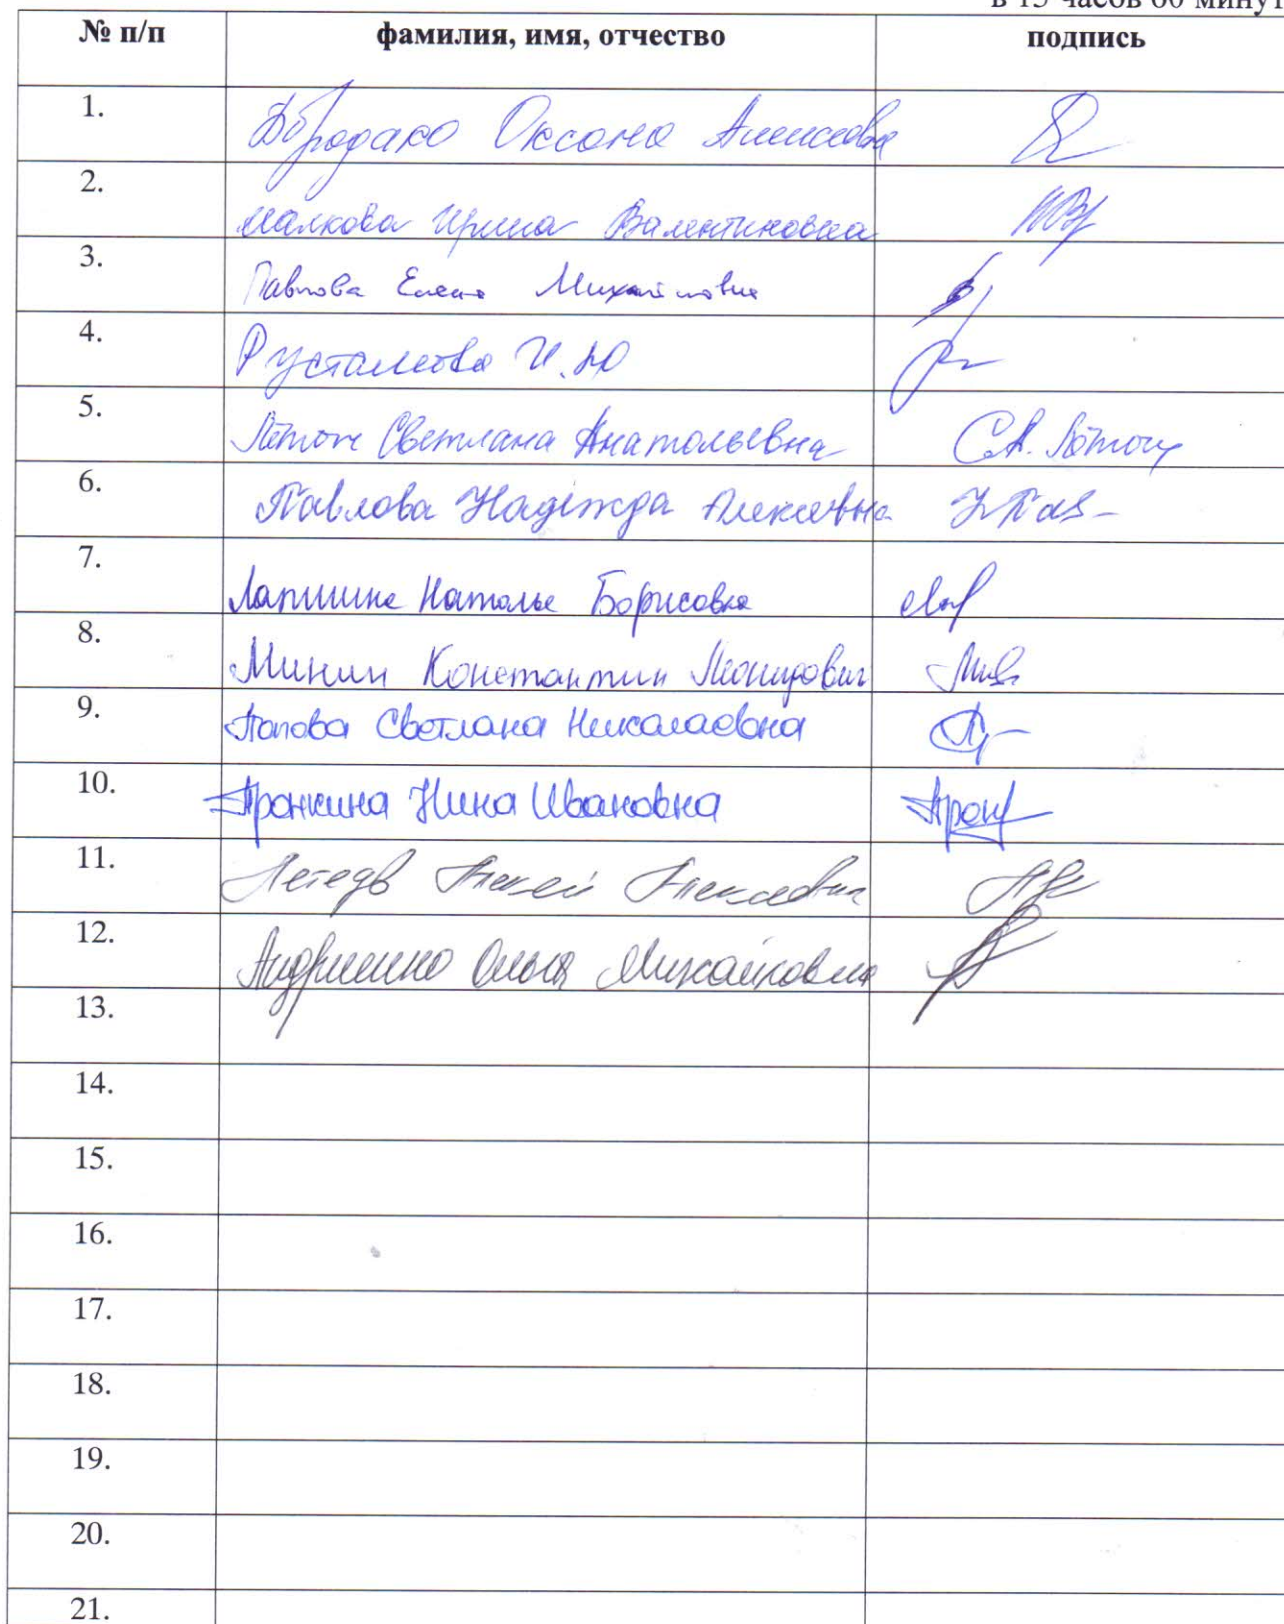 в 15 часов 00 минут
№ п/п фамилия, имя, отчество подпись
1. Бородако Оксана Алексеевна
2. Малкова Ирина Валентиновна
3. Павлова Елена Михайловна
4. Рустамова И.Ю
5. Светлана Анатольевна С.А.
6. Павлова Надежда Алексеевна
7. Лапшина Наталья Борисовна
8. Минин Константин Леонидович
9. Попова Светлана Николаевна
10. Пронкина Нина Ивановна
11.
12. Ольга Михайловна
13.
14.
15.
16.
17.
18.
19.
20.
21.